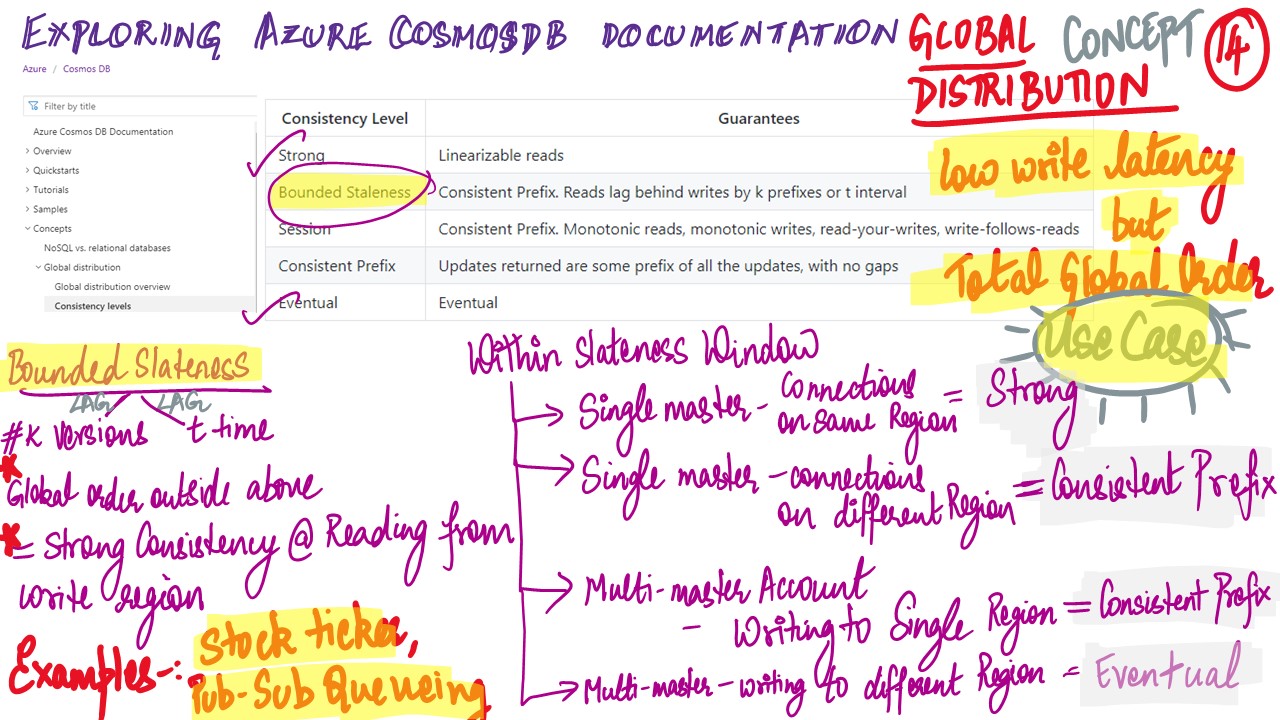 EXPLORING AZURE COSMOSDB DOCUMENTATION
GLOBAL DISTRIBUTION
CONCEPT
T4
Azure / Cosmos DB
Filter by title
Azure Cosmos DB Documentation
Overview
Quickstarts
Tutorials
Samples
Concepts
NoSQL vs. relational databases
Global distribution
Global distribution overview
Consistency levels
Consistency Level Guarantees
Strong Linearizable reads
Bounded Staleness Consistent Prefix. Reads lag behind writes by k prefixes or t interval
Session Consistent Prefix. Monotonic reads, monotonic writes, read-your-writes, write-follows-reads
Consistent Prefix Updates returned are some prefix of all the updates, with no gaps
Eventual Eventual
low write latency
but
Total Global Order
Use Case
Bounded Slateness
LAG LAG
#K Versions t time
* Global order outside above
* = Strong Consistency @ Reading from
write region
Examples-:
Stock ticker,
Pub-Sub Queueing
Within Slateness Window
Single master - Connections
on same Region = Strong
Single master - connections
on different Region = Consistent Prefix
Multi-master Account
- Writing to Single Region = Consistent Prefix
Multi-master - writing to different Region = Eventual